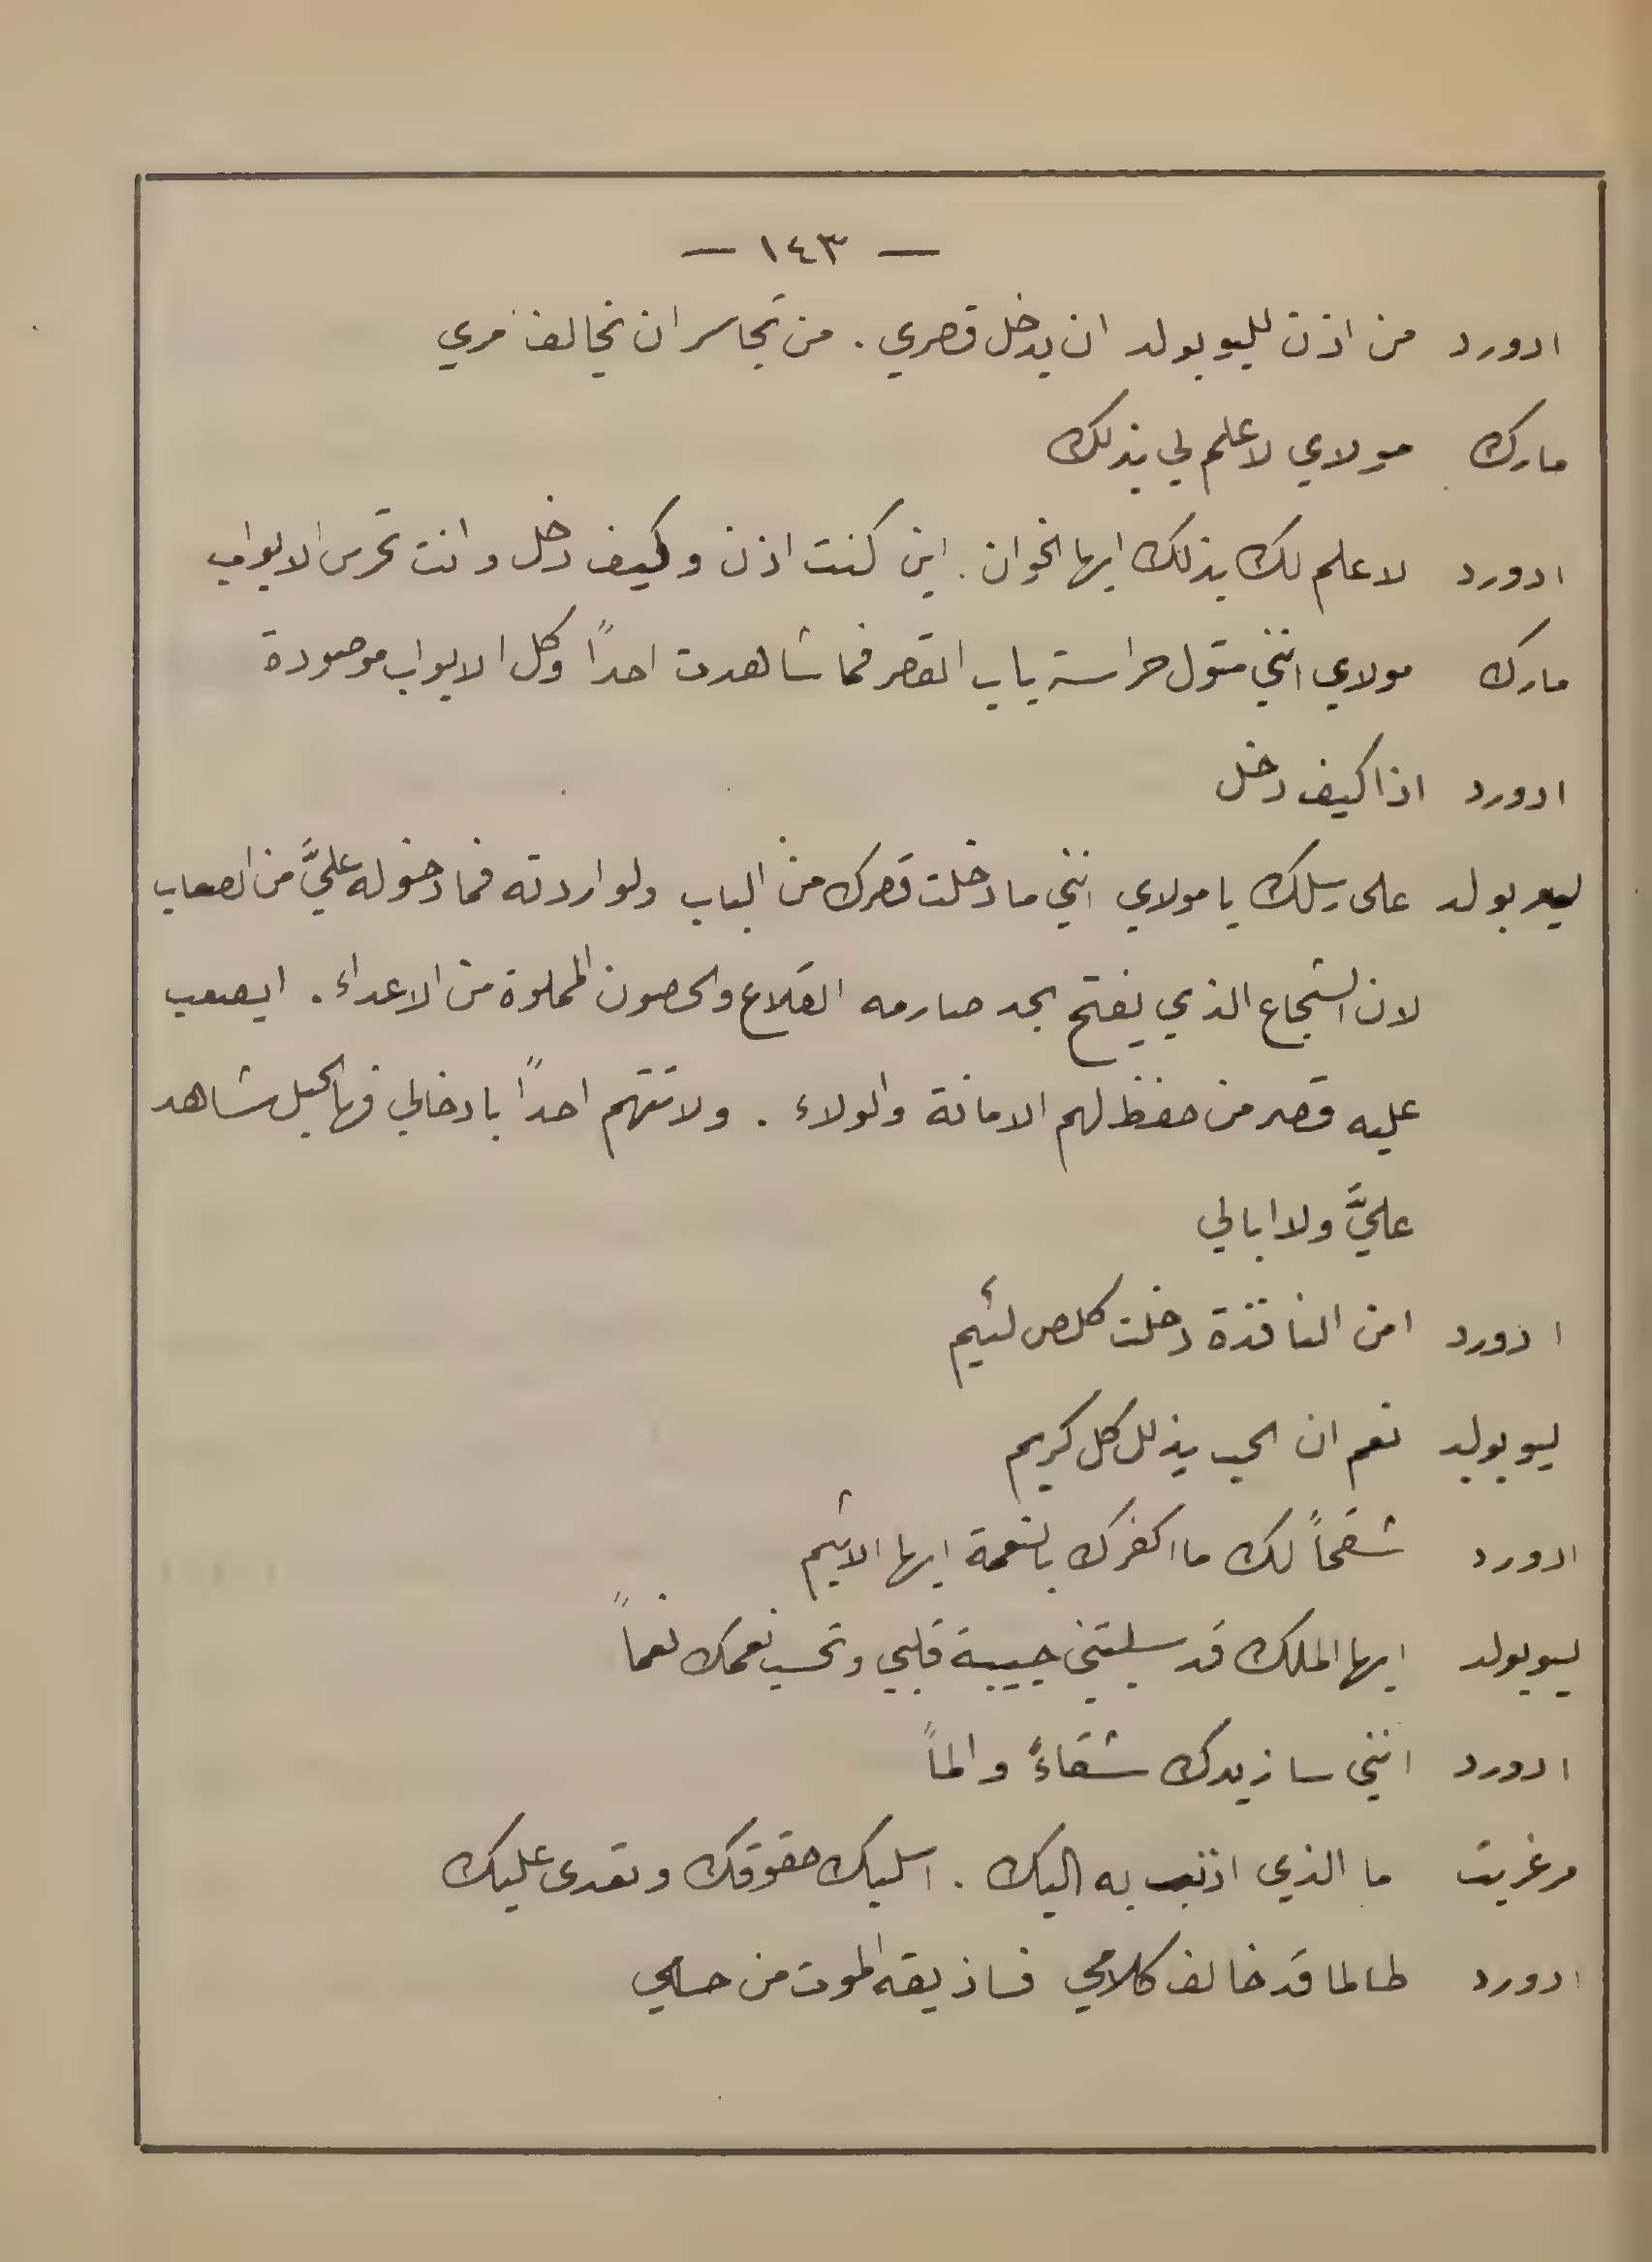 — ١٤٣ —
ادورد من اذن لليوبولد ان يدخل قصري . من تجاسر ان يخالف مري
مارك مولاي لا علم لي بذلك
ادورد لا علم لك بذلك ايها الخوان . اين كنت اذن وكيف دخل وانت تحرس الابواب
مارك مولاي انني متول حراسة باب القصر فما شاهدت احداً وكل الابواب موصودة
ادورد اذا كيف دخل
ليوبولد على رسلك يا مولاي انني ما دخلت قصرك من الباب ولو اردته فما دخوله عليَّ من الصعاب
لان الشجاع الذي يفتح بحد صارمه القلاع والحصون المملوة من الاعداء . ايصعب
عليه قصر من حفظ لهم الامانة والولاء . ولا تتهم احداً بادخالي فها الحبل شاهد
عليَّ ولا ابالي
ادورد امن النافذة دخلت كلص لئيم
ليوبولد نعم ان الحب يذلل كل كريم
ادورد شقحاً لك ما اكفرك بالنعمة ايها الاثيم
ليوبولد ايها الملك قد سلبتني حبيبة قلبي وتحسب نعمك نعماً
ادورد انني سازيدك شقاءً والماً
مرغريت ما الذي اذنب به اليك . اسلبك حقوقك وتعدى عليك
ادورد طالما قد خالف كلامي فساذيقه الموت من حسامي